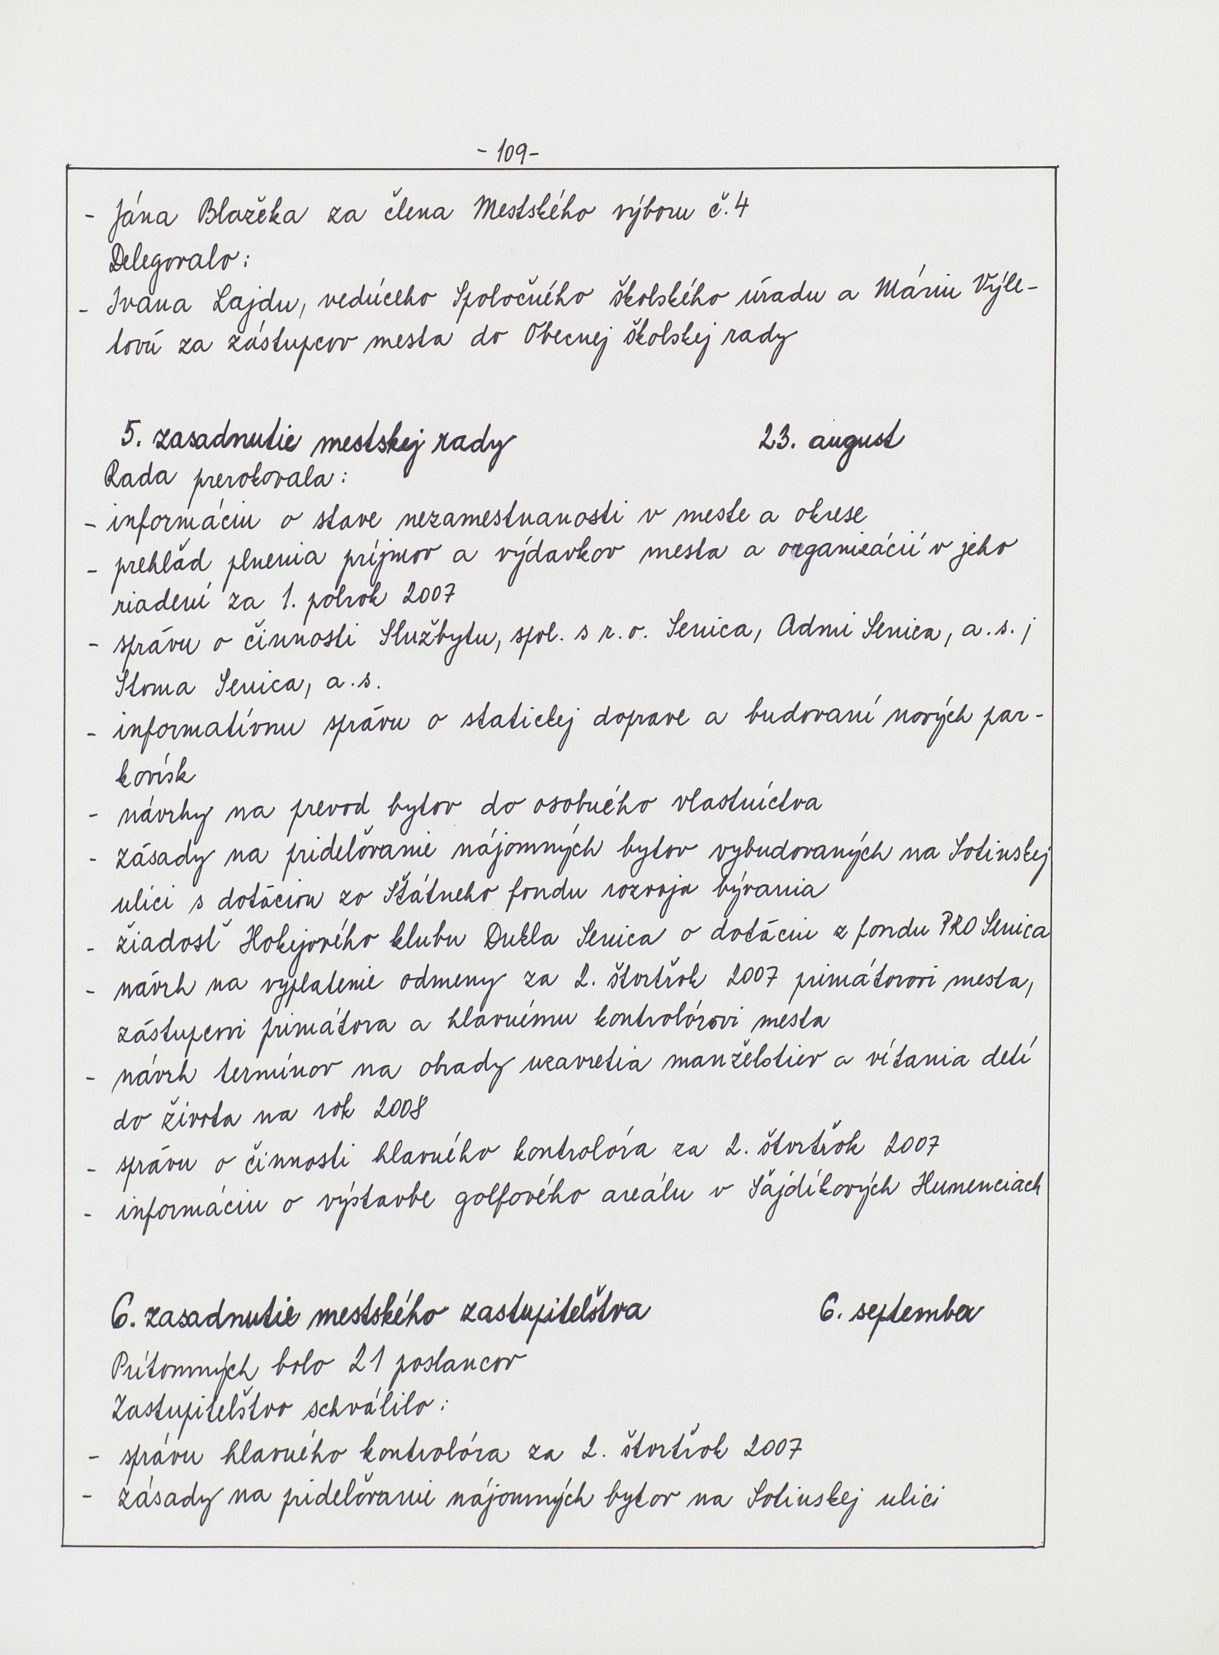 - 109-
- Jána Blažeka za člena Mestského výboru č.4
Delegovalo:
- Ivana Lajdu, vedúceho Spoločného školského úradu a Máriu Výle-
tovú za zástupcov mesta do Obecnej školskej rady
5. zasadnutie mestskej rady 23. august
Rada prerokovala:
- informáciu o stave nezamestnanosti v meste a okrese
- prehľad plnenia príjmov a výdavkov mesta a organizácií v jeho
riadení za 1. polrok 2007
- správu o činnosti Službytu, spol. s r.o. Senica, Admi Senica, a.s.,
Stoma Senica, a.s.
- informatívnu správu o statickej doprave a budovaní nových par-
kovísk
- návrhy na prevod bytov do osobného vlastníctva
- zásady na prideľovanie nájomných bytov vybudovaných na Sotinskej
ulici s dotáciou zo Štátneho fondu rozvoja bývania
- žiadosť Hokejového klubu Dukla Senica o dotáciu z fondu PRO Senica
- návrh na vyplatenie odmeny za 2. štvrťrok 2007 primátorovi mesta,
zástupcovi primátora a hlavnému kontrolórovi mesta
- návrh termínov na obrady uzavretia manželstiev a vítania detí
do života na rok 2008
- správu o činnosti hlavného kontrolóra za 2. štvrťrok 2007
- informáciu o výstavbe golfového areálu v Šajdíkových Humenciach
6. zasadnutie mestského zastupiteľstva 6. september
Prítomných bolo 21 poslancov
Zastupiteľstvo schválilo:
- správu hlavného kontrolóra za 2. štvrťrok 2007
- zásady na prideľovanie nájomných bytov na Sotinskej ulici